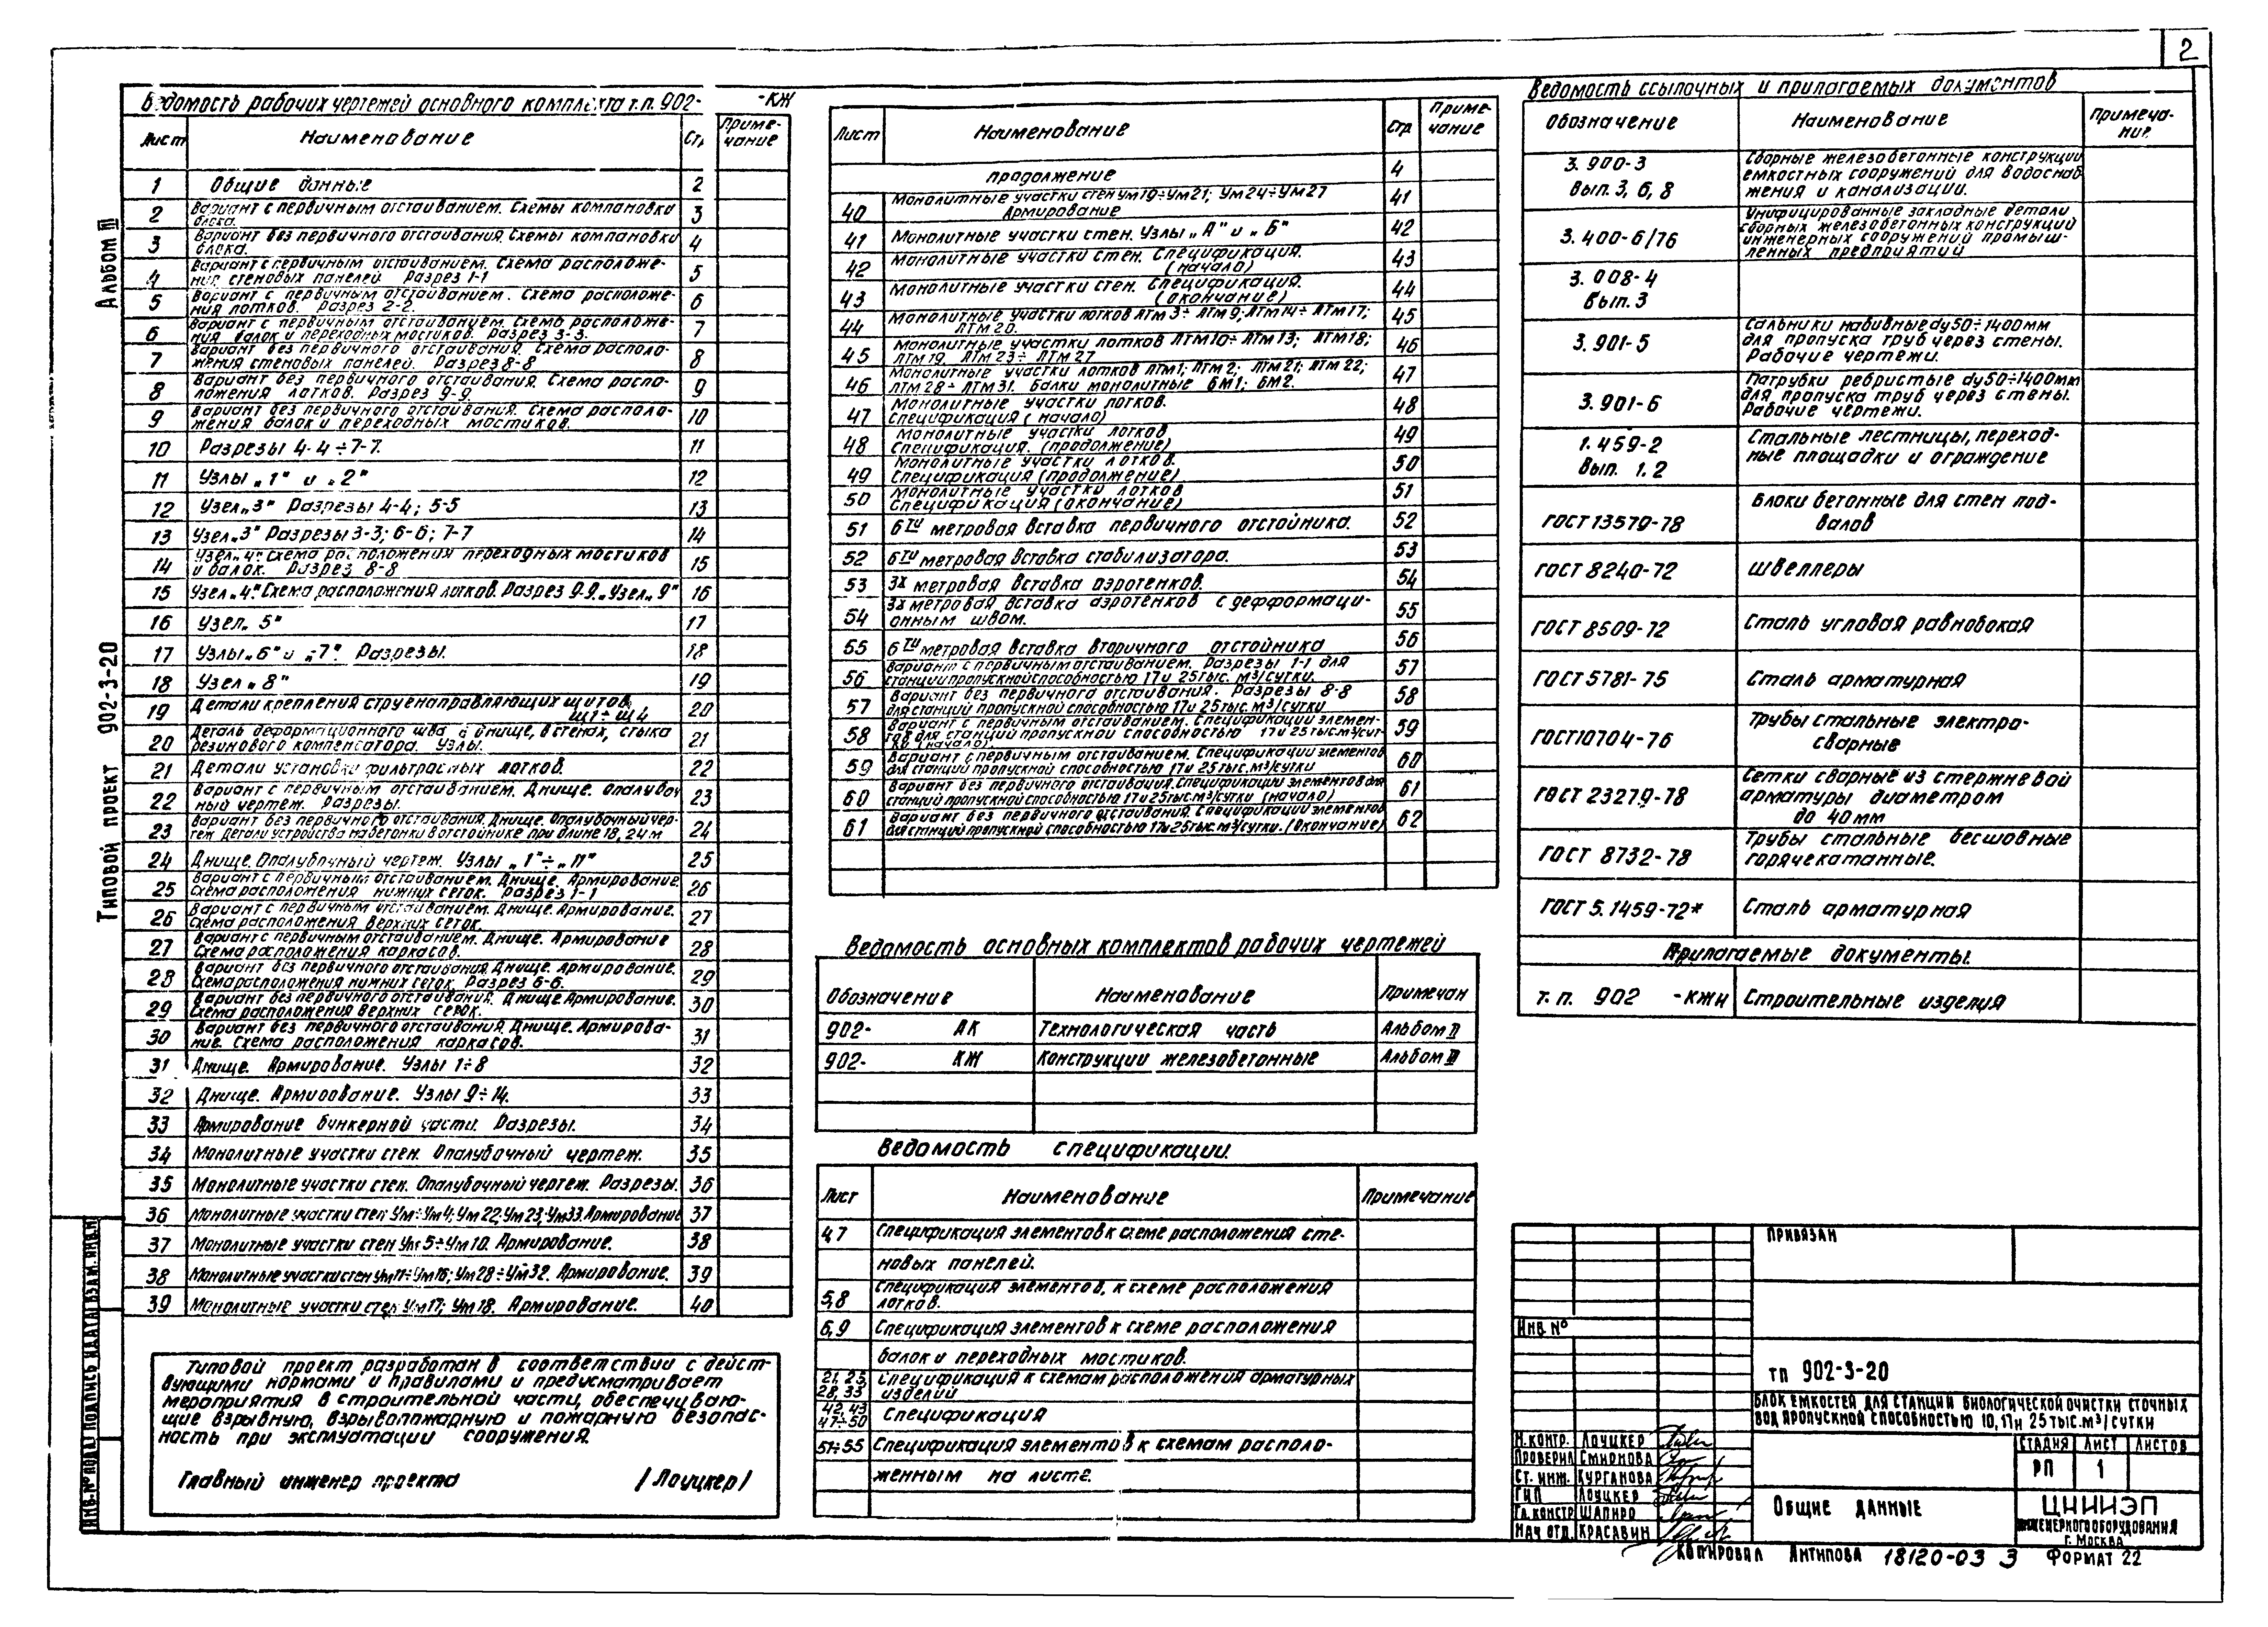 2
Альбом III
Типовой проект 902-3-20
Ведомость рабочих чертежей основного комплекта т.п. 902- -КЖ
Лист Наименование Стр. Примечание
1 Общие данные 2
2 Вариант с первичным отстаиванием. Схемы компановки
блока. 3
3 Вариант без первичного отстаивания. Схемы компановки
блока. 4
4 Вариант с первичным отстаиванием. Схема расположе-
ния стеновых панелей Разрез 1-1 5
5 Вариант с первичным отстаиванием. Схема расположе-
ния лотков. Разрез 2-2. 6
6 Вариант с первичным отстаиванием. Схема расположе-
ния балок и переходных мостиков. Разрез 3-3. 7
7 Вариант без первичного отстаивания. Схема располо-
жения стеновых панелей. Разрез 8-8 8
8 Вариант без первичного отстаивания. Схема распо-
ложения лотков. Разрез 9-9 9
9 Вариант без первичного отстаивания. Схема располо-
жения балок и переходных мостиков. 10
10 Разрезы 4-4÷7-7. 11
11 Узлы „1" и „2" 12
12 Узел „3" Разрезы 4-4; 5-5 13
13 Узел „3" Разрезы 3-3; 6-6; 7-7 14
14 Узел „4". Схема расположения переходных мостиков
и балок. Разрез 8-8 15
15 Узел „4". Схема расположения лотков. Разрез 9-9. „Узел „9" 16
16 Узел „5" 17
17 Узлы „6" и „7". Разрезы. 18
18 Узел „8" 19
19 Детали крепления струенаправляющих щитов
Щ1÷Щ4 20
20 Деталь деформационного шва в днище, в стенах, стыка
резинового компенсатора. Узлы. 21
21 Детали установки фильтрасных лотков. 22
22 Вариант с первичным отстаиванием. Днище. Опалубоч
ный чертеж. Разрезы. 23
23 Вариант без первичного отстаивания. Днище. Опалубочный чер-
теж. Детали устройства набетонки в отстойнике при длине 18, 24 м 24
24 Днище. Опалубочный чертеж. Узлы „1"÷„11" 25
25 Вариант с первичным отстаиванием. Днище. Армирование.
Схема расположения нижних сеток. Разрез 1-1 26
26 Вариант с первичным отстаиванием. Днище. Армирование.
Схема расположения верхних сеток. 27
27 Вариант с первичным отстаиванием. Днище. Армирование
Схема расположения каркасов. 28
28 Вариант без первичного отстаивания. Днище. Армирование.
Схема расположения нижних сеток. Разрез 6-6. 29
29 Вариант без первичного отстаивания. Днище. Армирование.
Схема расположения верхних сеток. 30
30 Вариант без первичного отстаивания. Днище. Армирова-
ние. Схема расположения каркасов. 31
31 Днище. Армирование. Узлы 1÷8 32
32 Днище. Армирование. Узлы 9÷14. 33
33 Армирование бункерной части. Разрезы. 34
34 Монолитные участки стен. Опалубочный чертеж. 35
35 Монолитные участки стен. Опалубочный чертеж. Разрезы. 36
36 Монолитные участки стен Ум÷Ум4; Ум22; Ум23; Ум33. Армирование 37
37 Монолитные участки стен Ум5÷Ум10. Армирование. 38
38 Монолитные участки стен Ум11÷Ум16; Ум28÷Ум32. Армирование. 39
39 Монолитные участки стен Ум17; Ум18. Армирование. 40
Типовой проект разработан в соответствии с дейст-
вующими нормами и правилами и предусматривает
мероприятия в строительной части, обеспечиваю-
щие взрывную, взрывопожарную и пожарную безопас-
ность при эксплуатации сооружения.
Главный инженер проекта /Лоуцкер/
Лист Наименование Стр Примечание
продолжение 4
40 Монолитные участки стен Ум19÷Ум21; Ум24÷Ум27
Армирование 41
41 Монолитные участки стен. Узлы „А" и „Б" 42
42 Монолитные участки стен. Спецификация.
(начало) 43
43 Монолитные участки стен. Спецификация.
(окончание) 44
44 Монолитные участки лотков ЛТм3÷ЛТм9; ЛТм14÷ЛТм17;
ЛТм20. 45
45 Монолитные участки лотков ЛТм10÷ЛТм13; ЛТм18;
ЛТм19, ЛТм23÷ЛТм27 46
46 Монолитные участки лотков ЛТм1; ЛТм2; ЛТм21; ЛТм22;
ЛТм28÷ЛТм31. Балки монолитные БМ1; БМ2. 47
47 Монолитные участки лотков.
Спецификация (начало) 48
48 Монолитные участки лотков
Спецификация. (продолжение) 49
49 Монолитные участки лотков.
Спецификация (продолжение) 50
50 Монолитные участки лотков
Спецификация (окончание) 51
51 6ти метровая вставка первичного отстойника. 52
52 6ти метровая вставка стабилизатора. 53
53 3х метровая вставка аэротенков. 54
54 3х метровая вставка аэротенков с дефформаци-
онным швом. 55
55 6ти метровая вставка вторичного отстойника 56
56 Вариант с первичным отстаиванием. Разрезы 1-1 для
станции пропускной способностью 17 и 25 тыс. м³/сутки. 57
57 Вариант без первичного отстаивания. Разрезы 8-8
для станций пропускной способностью 17 и 25 тыс. м³/сутки 58
58 Вариант с первичным отстаиванием. Спецификации элемен-
тов для станций пропускной способностью 17 и 25 тыс м³/сут-
ки (начало). 59
59 Вариант с первичным отстаиванием. Спецификации элементов
для станций пропускной способностью 17 и 25 тыс. м³/сутки 60
60 Вариант без первичного отстаивания. Спецификации элементов для
станций пропускной способностью 17 и 25 тыс м³/сутки (начало) 61
61 Вариант без первичного отстаивания. Спецификаций элементов
для станций пропускной способностью 17 и 25 тыс. м³/сутки. (Окончание) 62
Ведомость основных комплектов рабочих чертежей
Обозначение Наименование Примечан
902- АК Технологическая часть Альбом II
902- КЖ Конструкции железобетонные Альбом III
Ведомость спецификации.
Лист Наименование Примечание
4,7 Спецификация элементов к схеме расположения сте-
новых панелей.
5,8 Спецификация элементов, к схеме расположения
лотков.
6,9 Спецификация элементов к схеме расположения
балок и переходных мостиков.
21, 23, 28, 33 Спецификация к схемам расположения арматурных
изделий
42, 43 47÷50 Спецификация
51÷55 Спецификация элементов к схемам располо-
женным на листе.
Ведомость ссылочных и прилагаемых документов
Обозначение Наименование Примечание
3. 900-3
Вып. 3, 6, 8
Сборные железобетонные конструкции
емкостных сооружений для водоснаб
жения и канализации.
3. 400-6/76
Унифицированные закладные детали
сборных железобетонных конструкций
инженерных сооружений промыш-
ленных предприятий
3. 008-4
Вып. 3
3. 901-5
Сальники набивные dy50÷1400мм
для пропуска труб через стены.
Рабочие чертежи.
3. 901-6
Патрубки ребристые dy50÷1400мм
для пропуска труб через стены.
Рабочие чертежи.
1. 459-2
Вып. 1. 2
Стальные лестницы, переход-
ные площадки и ограждение
ГОСТ 13579-78
Блоки бетонные для стен под-
валов
ГОСТ 8240-72 Швеллеры
ГОСТ 8509-72 Сталь угловая равнобокая
ГОСТ 5781-75 Сталь арматурная
ГОСТ10704-76
Трубы стальные электро-
сварные
ГОСТ 23279-78
Сетки сварные из стержневой
арматуры диаметром
до 40 мм
ГОСТ 8732-78
Трубы стальные бесшовные
горячекатанные.
ГОСТ 5.1459-72* Сталь арматурная
Прилагаемые документы.
т. п. 902 -КЖИ Строительные изделия
Привязан
Инв. №
тп 902-3-20
Блок емкостей для станции биологической очистки сточных
вод пропускной способностью 10, 17 и 25 тыс. м³/сутки
Н.контр. Лоуцкер
Проверил Смирнова
Ст. инж. Курганова
ГИП Лоуцкер
Гл. констр Шапиро
Нач отд. Красавин
Стадия Лист Листов
РП 1
Общие данные
ЦНИИЭП
инженерного оборудования
г. Москва
Копировал Антипова 18120-03 3 Формат 22
Инв. № подл. Подпись и дата Взам. инв. №